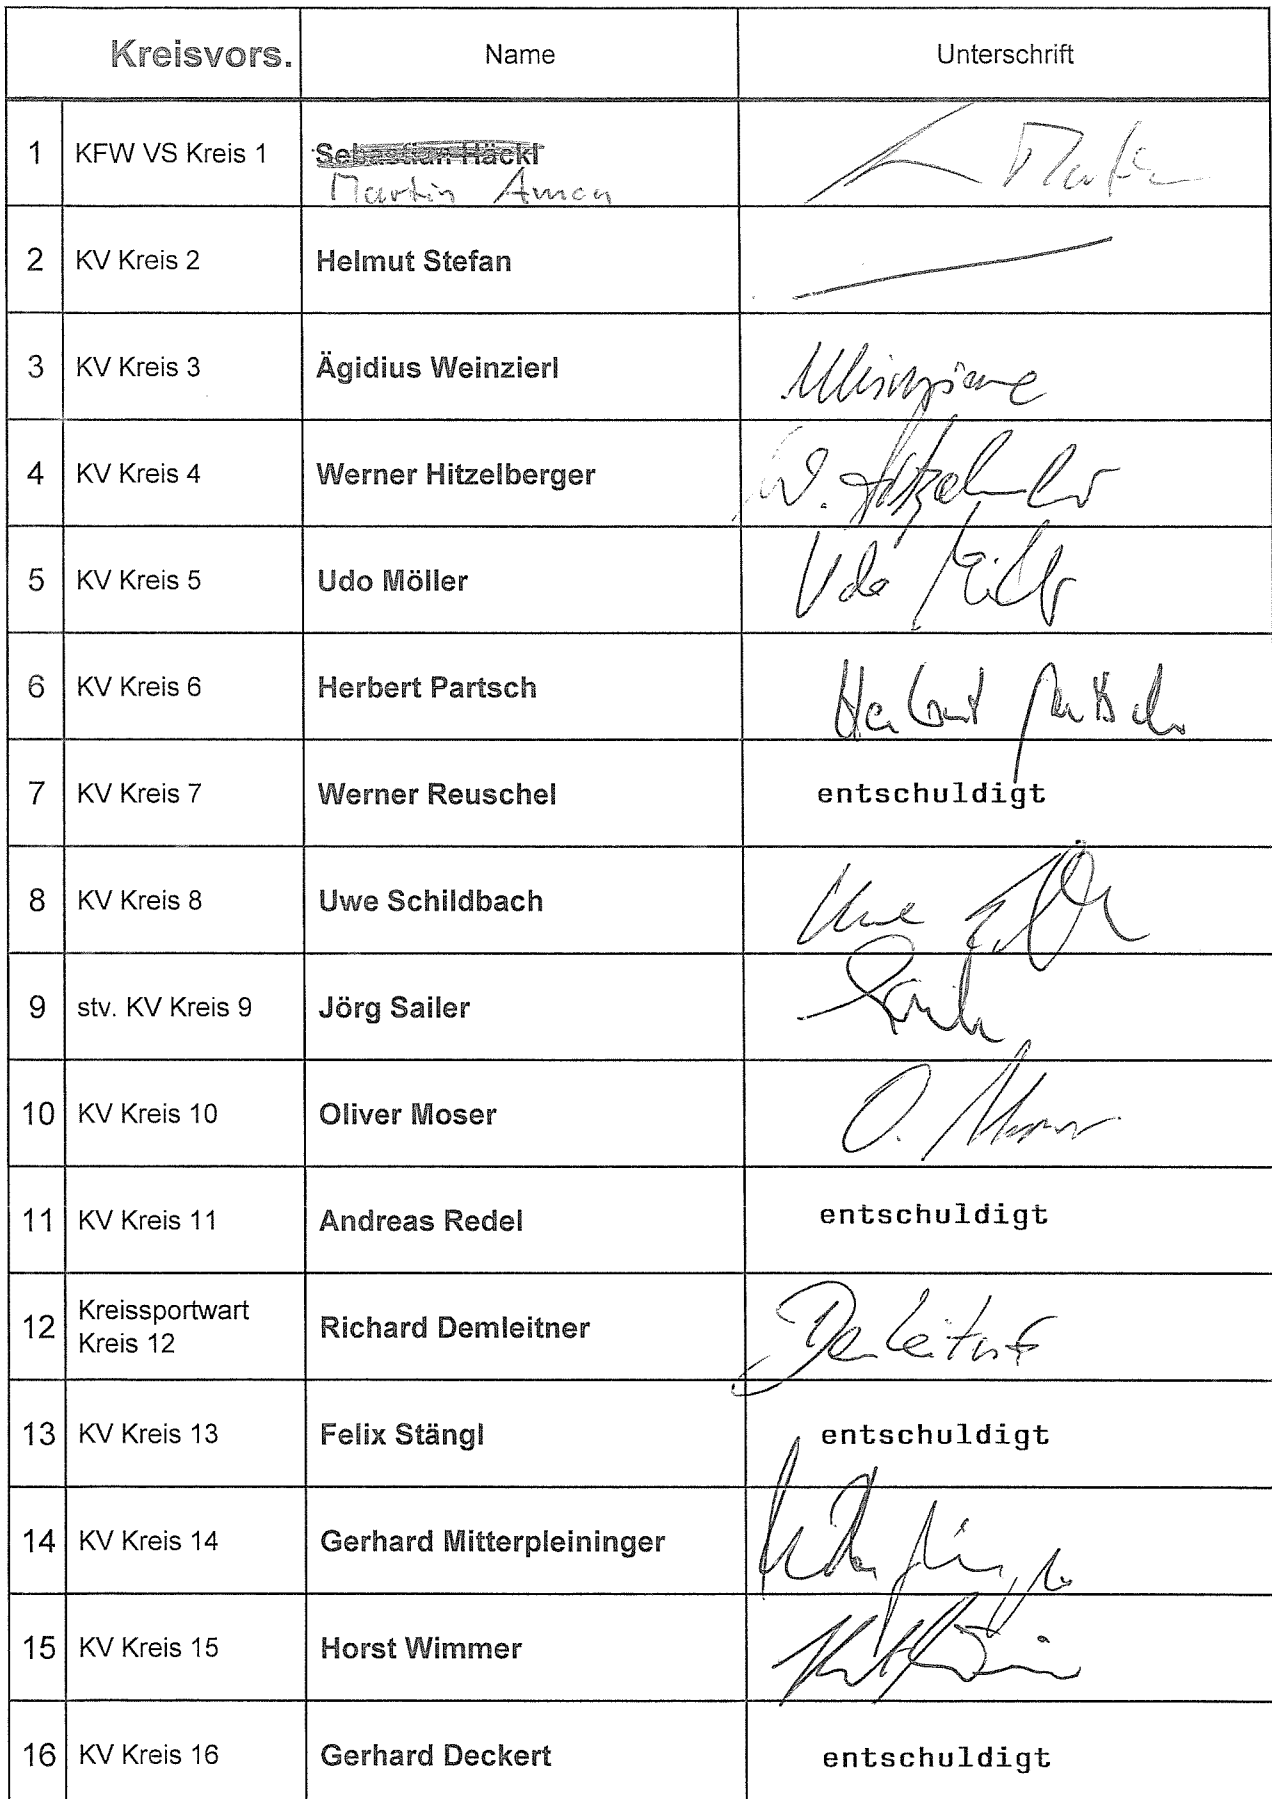 Kreisvors. Name Unterschrift
1 KFW VS Kreis 1 Sebastian Häckl
Martin Aman
2 KV Kreis 2 Helmut Stefan
3 KV Kreis 3 Ägidius Weinzierl
4 KV Kreis 4 Werner Hitzelberger W. Hitzelberger
5 KV Kreis 5 Udo Möller Udo Möller
6 KV Kreis 6 Herbert Partsch Herbert Partsch
7 KV Kreis 7 Werner Reuschel entschuldigt
8 KV Kreis 8 Uwe Schildbach Uwe
9 stv. KV Kreis 9 Jörg Sailer Sailer
10 KV Kreis 10 Oliver Moser O. Moser
11 KV Kreis 11 Andreas Redel entschuldigt
12 Kreissportwart
Kreis 12 Richard Demleitner Demleitner
13 KV Kreis 13 Felix Stängl entschuldigt
14 KV Kreis 14 Gerhard Mitterpleininger
15 KV Kreis 15 Horst Wimmer
16 KV Kreis 16 Gerhard Deckert entschuldigt